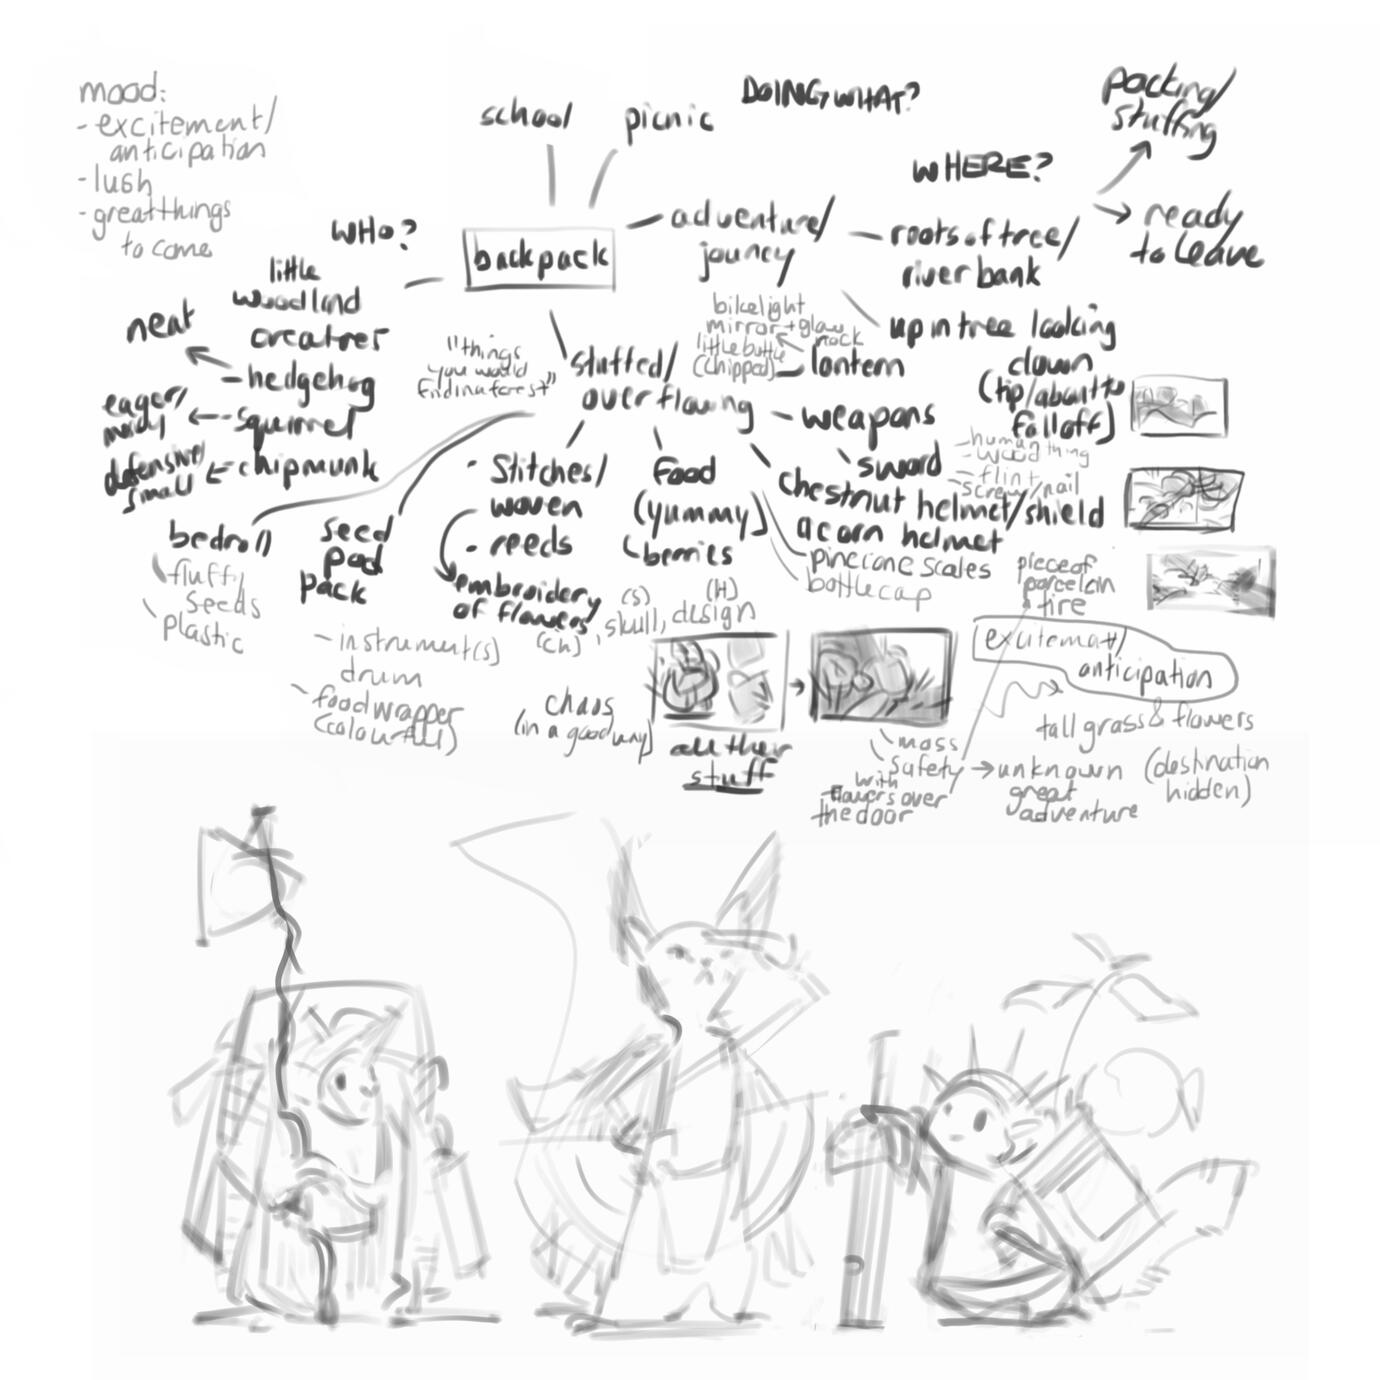 mood:
- excitement/
anticipation
- lush
- great things
to come
school
picnic
DOING WHAT?
packing/
stuffing
WHERE?
ready
to leave
WHO?
backpack
adventure/
jouney
roots of tree/
river bank
little
woodland
creatres
neat
- hedgehog
eager/
squirrel
defensive/
small
chipmunk
"things
you would
find in a forest"
stuffed/
overflowing
bikelight
mirror + glow
rock
little bottle
(chipped)
lantern
up in tree looking
down
(tip/about to
fall off)
- weapons
sword
- human
wood thing
- flint
- screw/nail
chestnut helmet/shield
acorn helmet
pinecone scales
bottle cap
piece of
porcelain
tire
· Stitches/
woven
· reeds
embroidery
of flowers
(ch)
(S)
, skull,
(H)
design
food
(yummy)
berries
bedroll
fluff/
seeds
plastic
seed
pod
pack
- instrument(s)
drum
- food wrapper
(colourful)
chaos
(in a good way)
all ther
stuff
excitematt/
anticipation
tall grass & flowers
moss
safety
with
flowers over
the door
unknown
great
adventure
(destination
hidden)